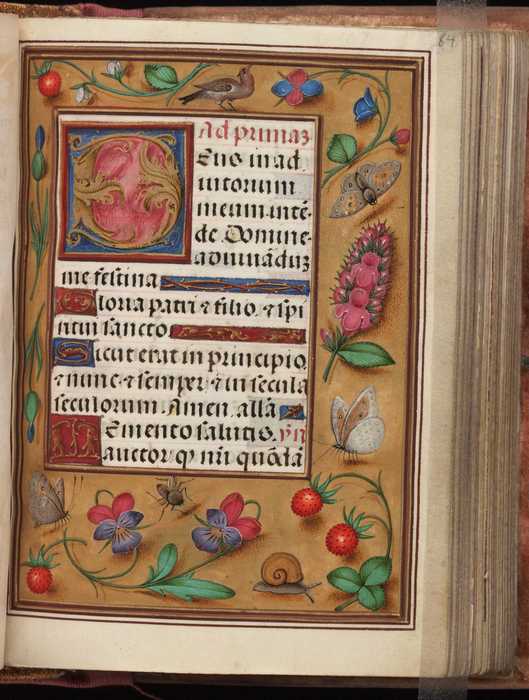 64
Ad primaz
Deus in ad
iutorium
meum intē-
de. Domine
adiuuādūz
me festina
Gloria patri ⁊ filio, ⁊ spi
ritui sancto
Sicut erat in principio
⁊ nunc, ⁊ semper, ⁊ in secula
seculorum. Amen. alła
Memento salutis. ẏn
auctor qͥ nrī quōdā